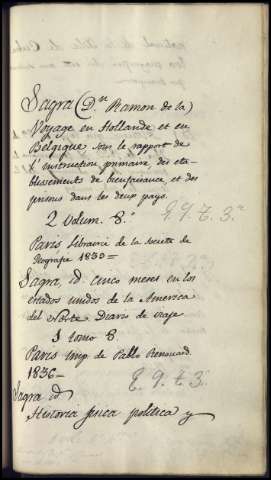 Sagra (D.n Ramon de la)
Voyage en Hollande et en
Belgique sous le rapport de
l'instruction primaire des eta-
blissements de bienfaisance, et des
prisons dans les deux pays.
2 Volum. 8.º
E. 9. t. 3.ª
Paris librairie de la
Geografie 1839=
Sagra, id. cinco meses en los
estados unidos de la America
del Norte. Diario de viaje
1 tomo 8
Paris imp. de Pablo Renouard.
1836-
E. 9. t. 3.
Sagra id
Historia fisica politica y